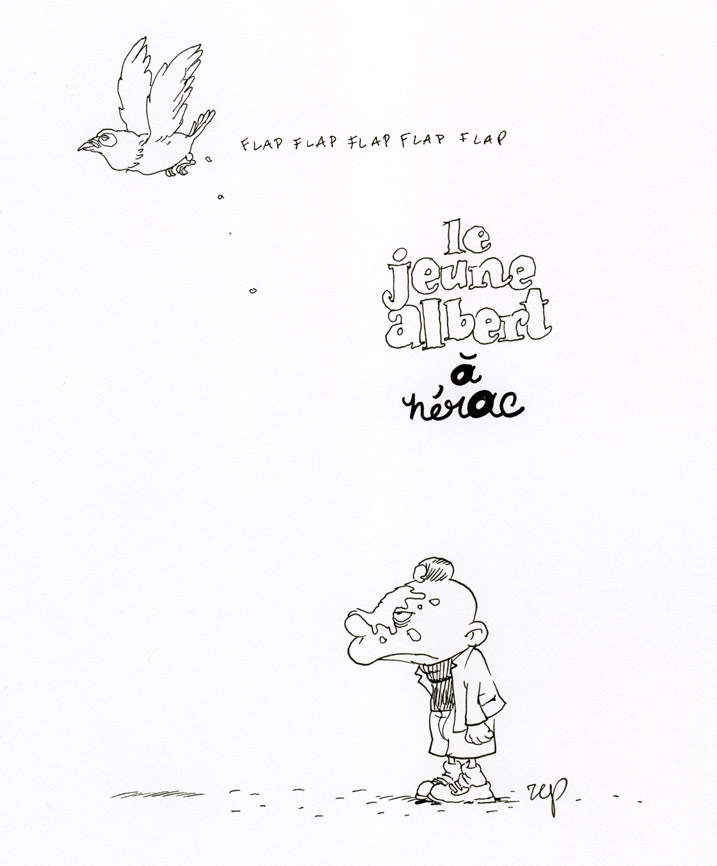 FLAP FLAP FLAP FLAP FLAP
le
jeune
albert
à
nérac
rep.